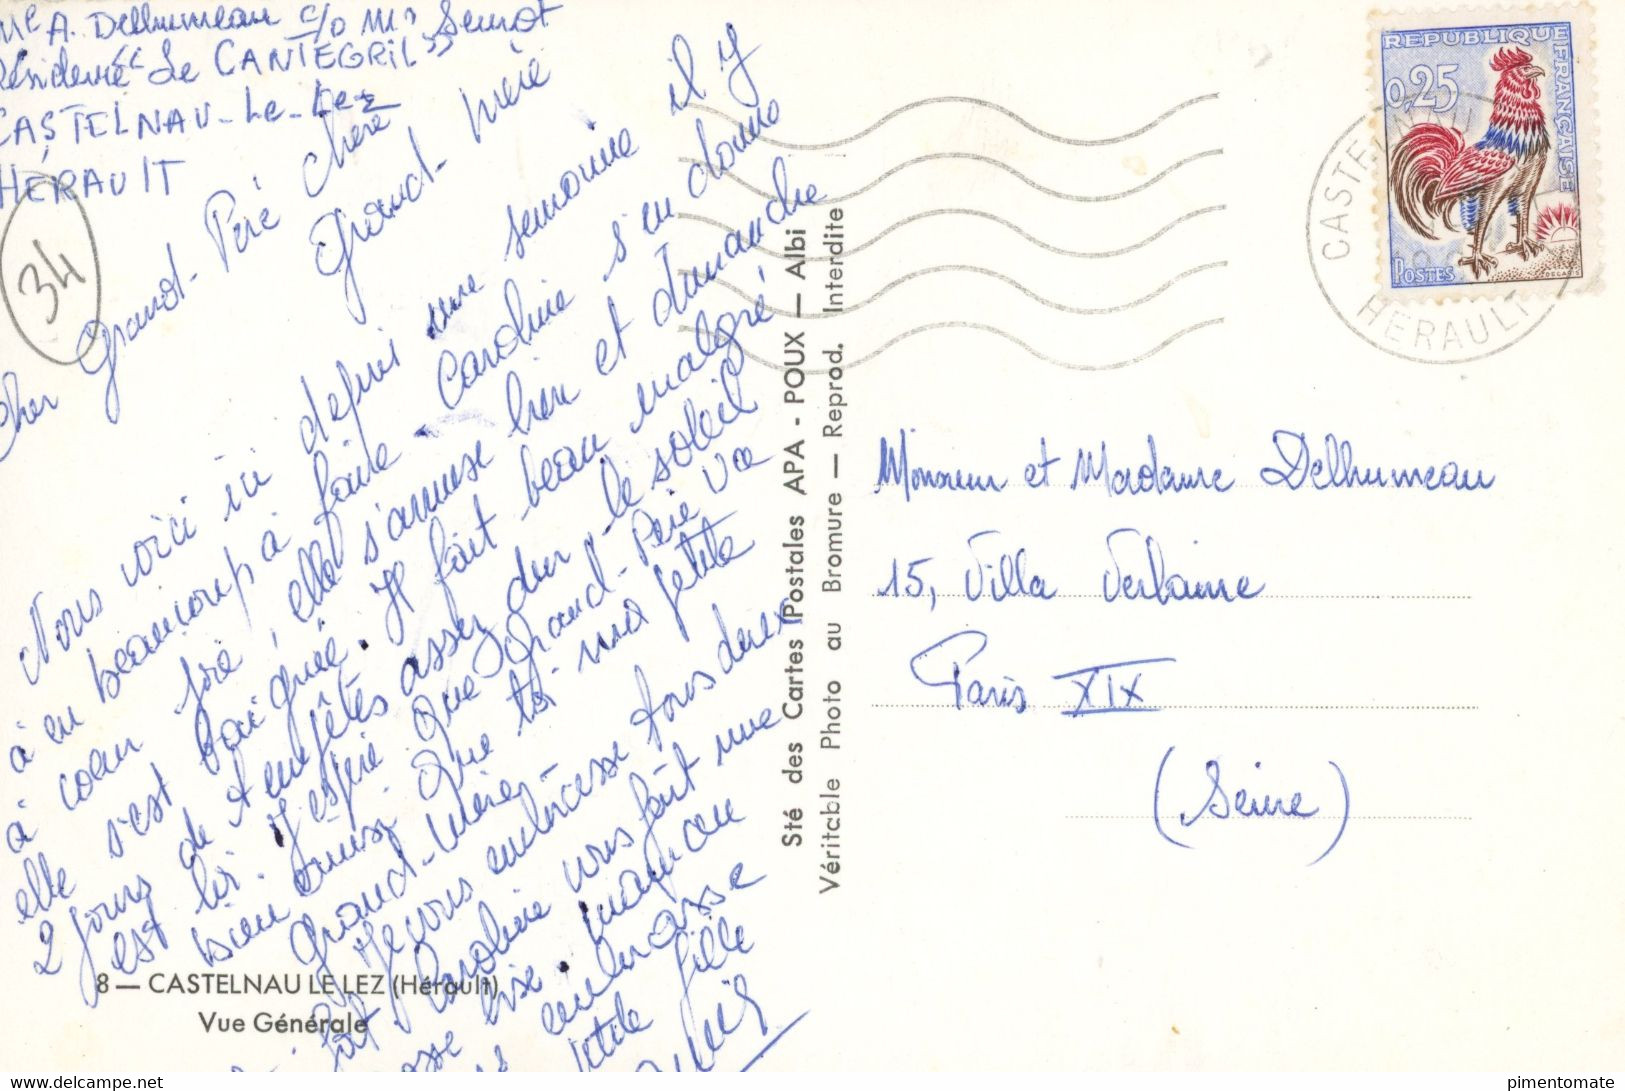 Mle A. Delhumeau c/o Mr Semot
Résidence "Le CANTEGRIL"
CASTELNAU-Le-Lez
HÉRAULT
34
Cher Grand-Père chère
Grand-mère
Nous voici ici depuis une semaine il y
à en beaucoup à faire. Caroline s'en donne
à coeur joie, elle s'amuse bien et dimanche
elle s'est baignée. Il fait beau malgré
2 jours de tempêtes assez dur, le soleil
est là. J'espère que Grand-Père va
bien ainsi que toi ma petite
Grand-Mère.
Je vous embrasse tous deux
Caroline vous fait une
grosse bise. maman
embrasse
petite fille
8 — CASTELNAU LE LEZ (Hérault)
Vue Générale
Sté des Cartes Postales APA - POUX — Albi
Véritable Photo au Bromure — Reprod. Interdite
REPUBLIQUE FRANÇAISE
0,25
POSTES
DECARIS
CASTELNAU
HERAULT
Monsieur et Madame Delhumeau
15, Villa Verlaine
Paris XIX
(Seine)
www.delcampe.net
pimentomate